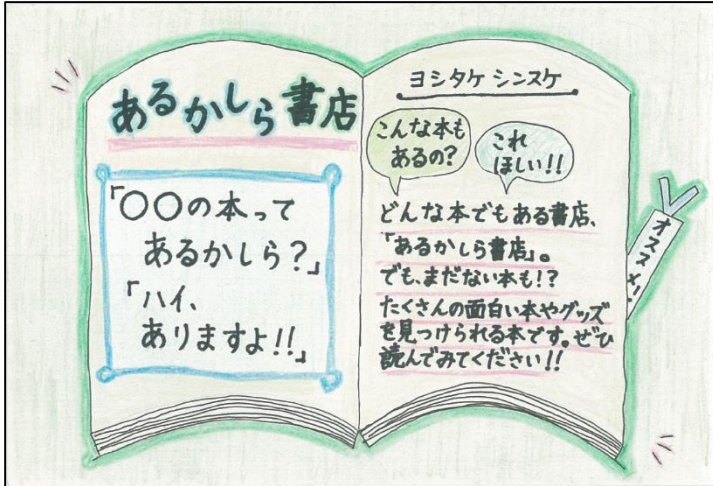 あるかしら書店
「〇〇の本って
あるかしら?」
「ハイ、
ありますよ!!」
ヨシタケ シンスケ
こんな本も
あるの?
これ
ほしい!!
どんな本でもある書店、
「あるかしら書店」。
でも、まだない本も!?
たくさんの面白い本やグッズ
を見つけられる本です。ぜひ
読んでみてください!!
オススメ!